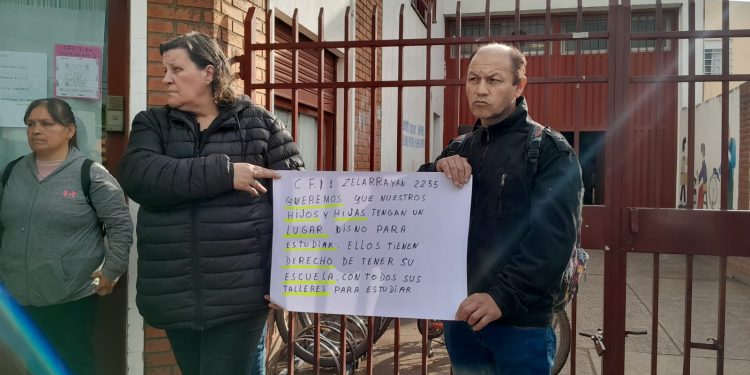 C.F.P 1 ZELARRAYÁN 2255
QUEREMOS QUE NUESTROS
HIJOS Y HIJAS TENGAN UN
LUGAR DISNO PARA
ESTUDIAR. ELLOS TIENEN
DERECHO DE TENER SU
ESCUELA, CON TODOS SUS
TALLERES PARA ESTUDIAR